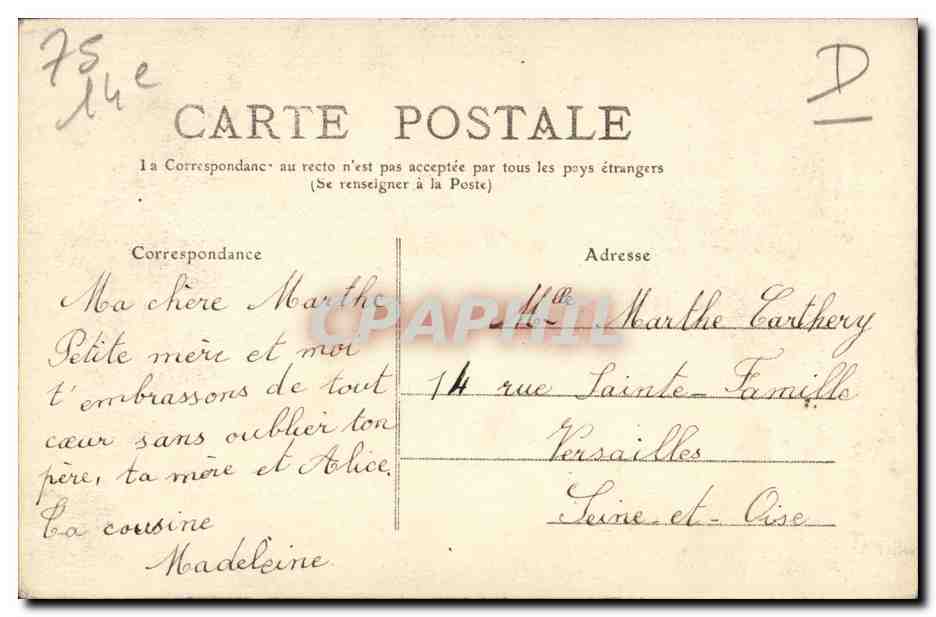 75
14e
D
CARTE POSTALE
La Correspondance au recto n'est pas acceptée par tous les pays étrangers
(Se renseigner à la Poste)
Correspondance
Ma chère Marthe
Petite mère et moi
t'embrassons de tout
cœur sans oublier ton
père, ta mère et Alice.
Ta cousine
Madeleine
Adresse
Mlle Marthe Carthery
14 rue Sainte-Famille
Versailles
Seine-et-Oise
CPAPHIL